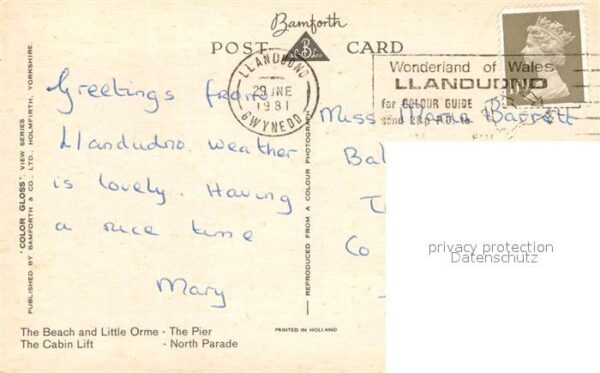 Bamforth
POST CARD
LLANDUDNO
29 JNE
1981
GWYNEDD
Wonderland of Wales
LLANDUDNO
for COLOUR GUIDE
Greetings from
Llandudno. Weather
is lovely. Having
a nice time
Mary
Miss Barrett
Co
privacy protection
Datenschutz
'COLOR GLOSS' VIEW SERIES
PUBLISHED BY BAMFORTH & CO., LTD., HOLMFIRTH, YORKSHIRE.
REPRODUCED FROM A COLOUR PHOTOGRAPH
The Beach and Little Orme - The Pier
The Cabin Lift - North Parade
PRINTED IN HOLLAND